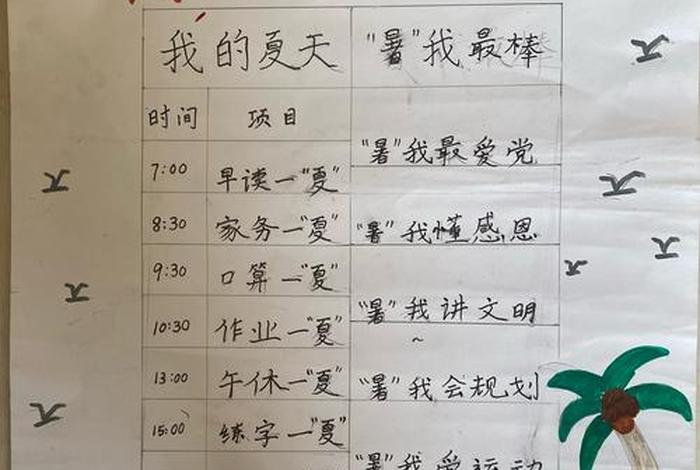 我的夏天 "暑"我最棒
时间 项目
"暑"我最爱党
7:00 早读一"夏"
8:30 家务一"夏" "暑"我懂感恩
9:30 口算一"夏"
"暑"我讲文明
10:30 作业一"夏"
13:00 午休一"夏" "暑"我会规划
15:00 练字一"夏"
"暑"我爱运动